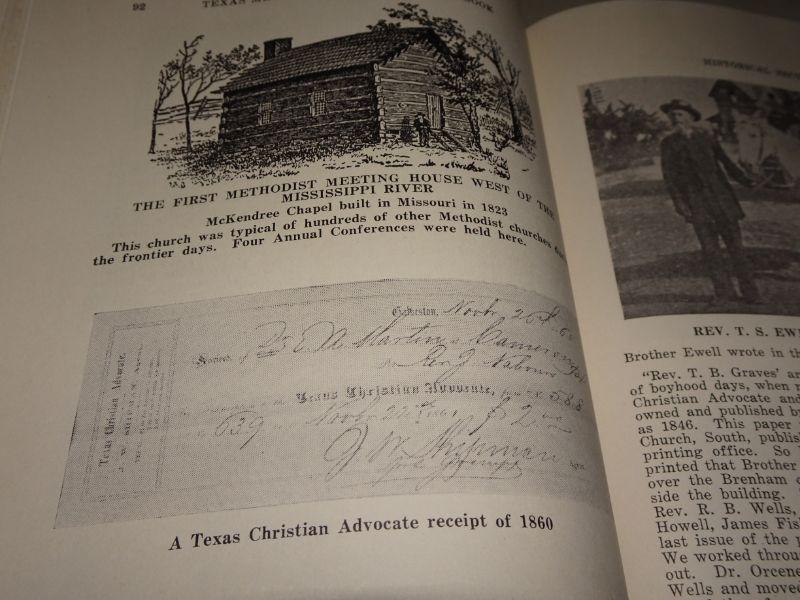 92 TEXAS ME OOK
THE FIRST METHODIST MEETING HOUSE WEST OF THE
MISSISSIPPI RIVER
McKendree Chapel built in Missouri in 1823
This church was typical of hundreds of other Methodist churches
the frontier days. Four Annual Conferences were held here.
Texas Christian Advocate.
Galveston, Novbr 26
Received of E A Martin Cameron
Texas Christian Advocate, 588
639 Novbr 22 $2
J W Shipman
A Texas Christian Advocate receipt of 1860
HISTORICAL
REV. T. S. EW
Brother Ewell wrote in th
"Rev. T. B. Graves' ar
of boyhood days, when
Christian Advocate and
owned and published b
as 1846. This paper
Church, South, publis
printing office. So
printed that Brother
over the Brenham
side the building.
Rev. R. B. Wells,
Howell, James Fis
last issue of the p
We worked throu
out. Dr. Orcene
Wells and move